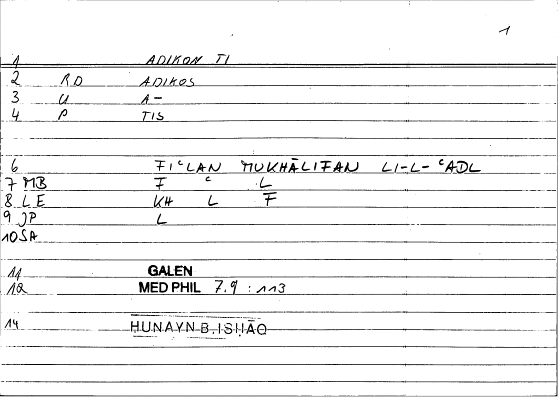 1
1 ADIKON TI
2 RD ADIKOS
3 U A-
4 P TIS
6 FIᶜLAN MUKHĀLIFAN LI-L-ᶜADL
7 MB F ᶜ L
8 LE KH L F
9 JP L
10 SA
11 GALEN
12 MED PHIL 7.9 : 113
14 HUNAYN B. ISḤĀQ